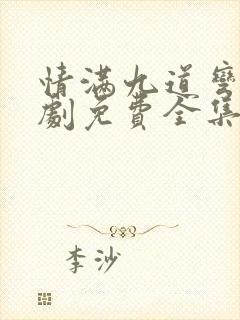 情满九道弯
劇免費全集
李沙